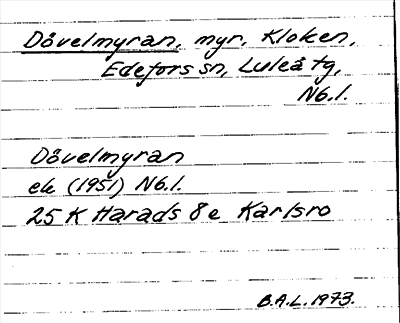 Dövelmyran, myr, Kloken,
Edefors sn, Luleå tg,
Nb.l.
Dövelmyran
ek (1951) Nb.l.
25 K Harads 8 e Karlsro
B.A.L. 1973.